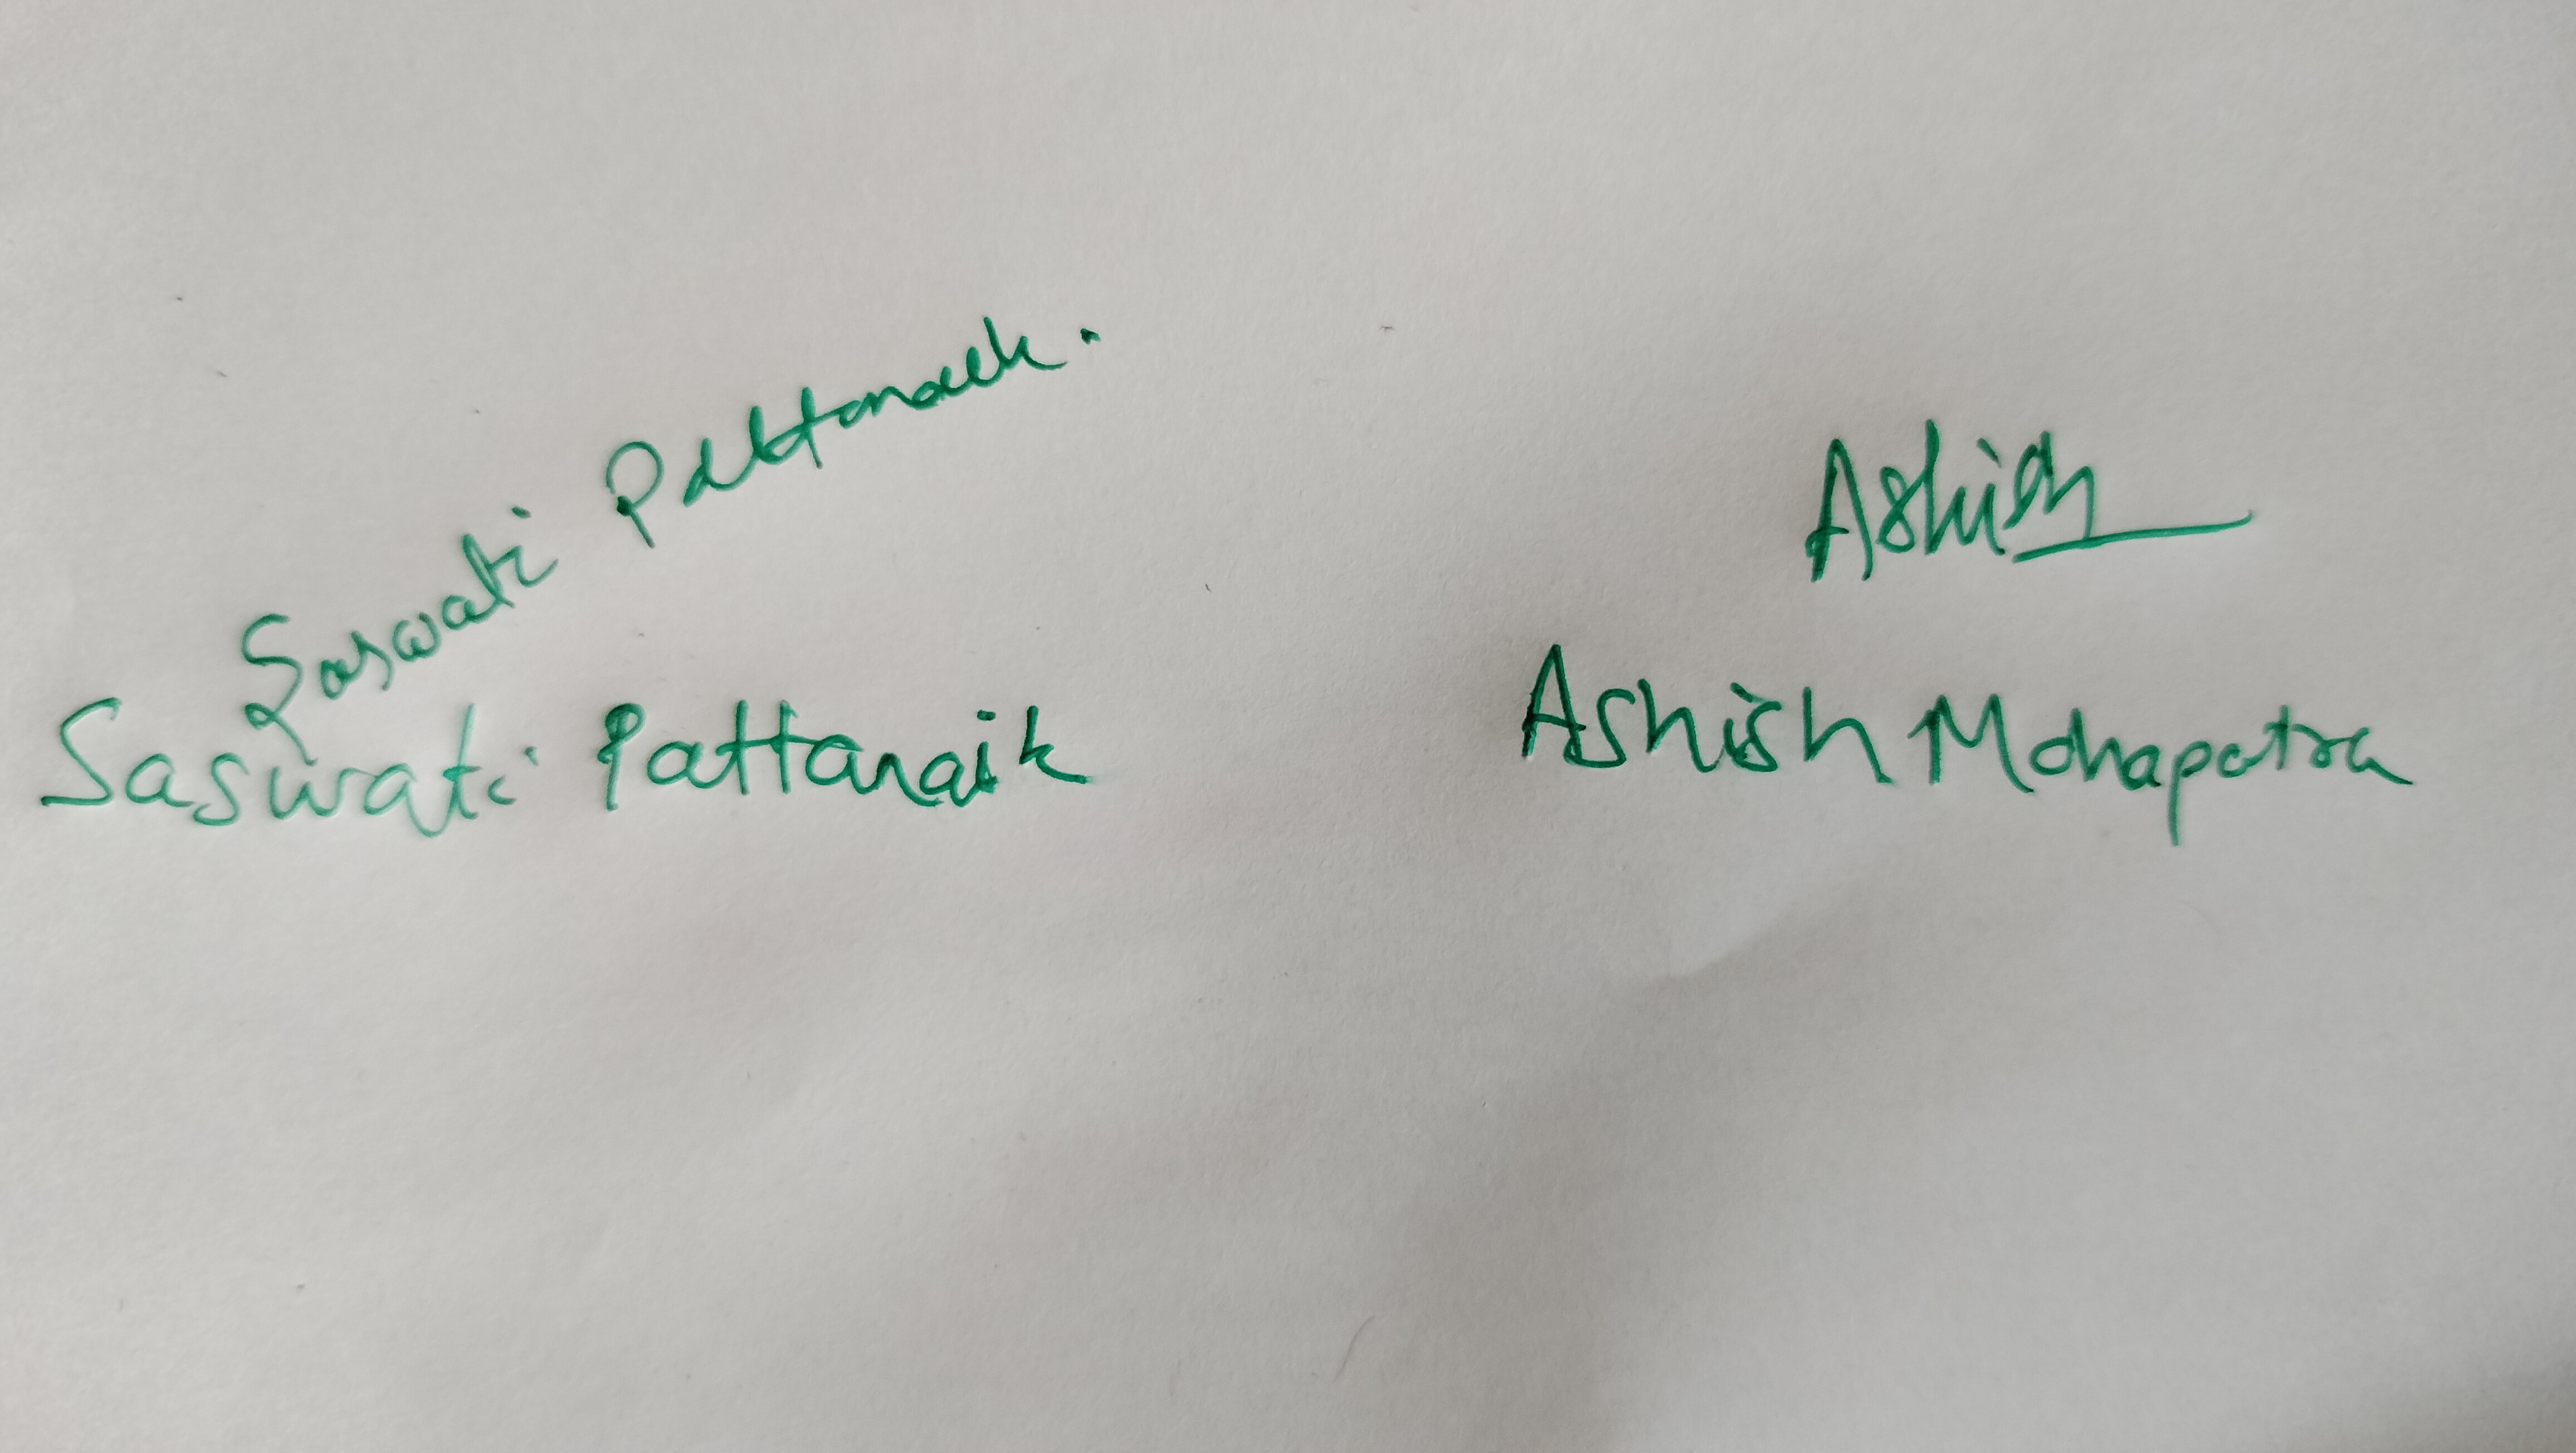 Saswati Pattanaik.
Saswati Pattanaik
Ashish
Ashish Mohapatra